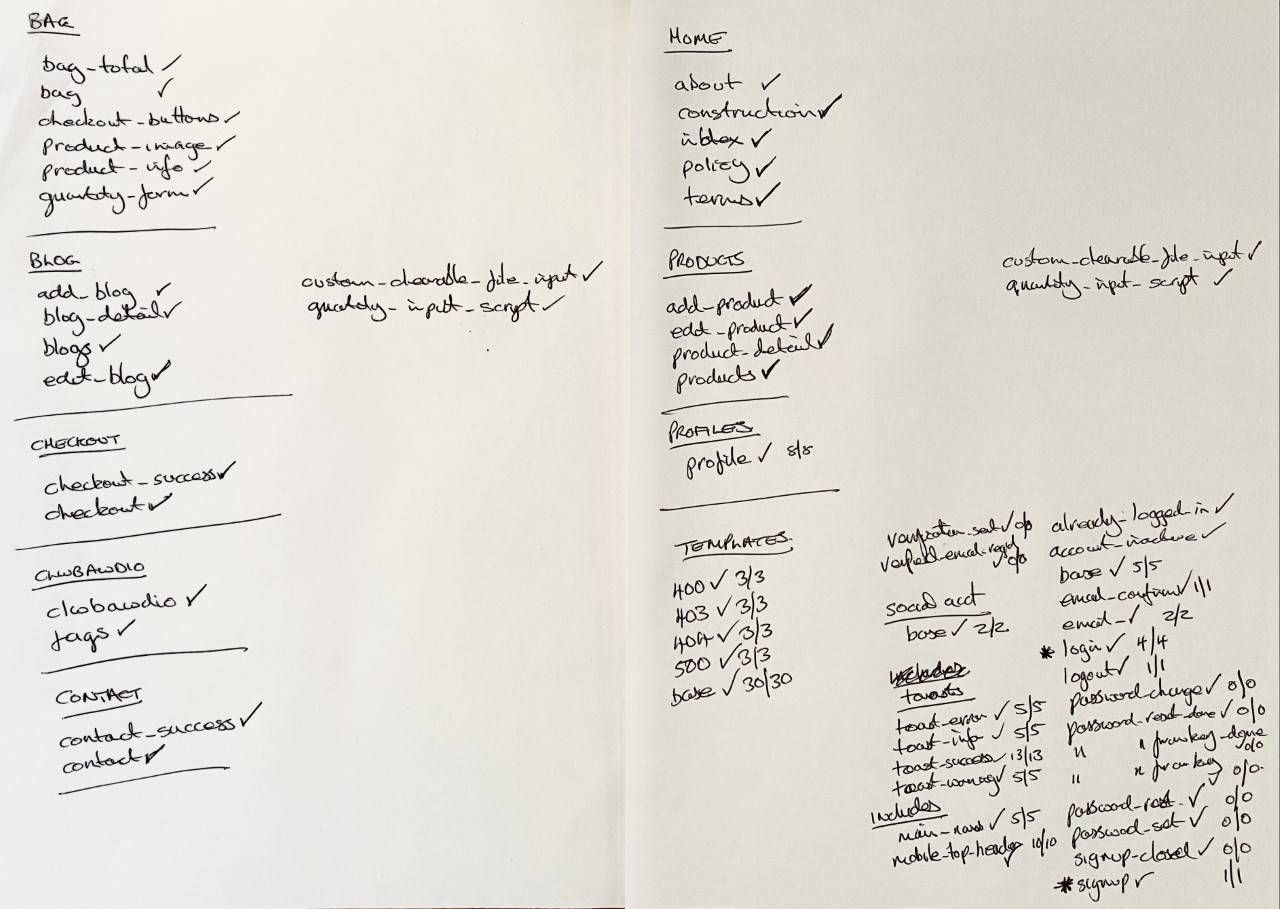 BAG
bag-total ✓
bag ✓
checkout-buttons ✓
product-image ✓
product-info ✓
quantity-form ✓
BLOG
add-blog ✓
blog-detail ✓
blogs ✓
edit-blog ✓
custom-clearable-file-input ✓
quantity-input-script ✓
CHECKOUT
checkout-success ✓
checkout ✓
CLWBAWDIO
clwbawdio ✓
tags ✓
CONTACT
contact-success ✓
contact ✓
HOME
about ✓
construction ✓
index ✓
policy ✓
terms ✓
PRODUCTS
add-product ✓
edit-product ✓
product-detail ✓
products ✓
custom-clearable-file-input ✓
quantity-input-script ✓
PROFILES
profile ✓ 5/5
TEMPLATES
400 ✓ 3/3
403 ✓ 3/3
404 ✓ 3/3
500 ✓ 3/3
base ✓ 30/30
verification-sent ✓ 0/0
verified-email-reqd ✓ 0/0
social acct
base ✓ 2/2
toasts
toast-error ✓ 5/5
toast-info ✓ 5/5
toast-success ✓ 13/13
toast-warning ✓ 5/5
includes
main-nav ✓ 5/5
mobile-top-header ✓ 10/10
already-logged-in ✓
account-inactive ✓
base ✓ 5/5
email-confirm ✓ 1/1
email- ✓ 2/2
* login ✓ 4/4
logout ✓ 1/1
password-change ✓ 0/0
password-reset-done ✓ 0/0
" " from key-done 0/0
" " from key ✓ 0/0
password-reset- ✓ 0/0
password-set ✓ 0/0
signup-closed ✓ 0/0
* signup ✓ 1/1